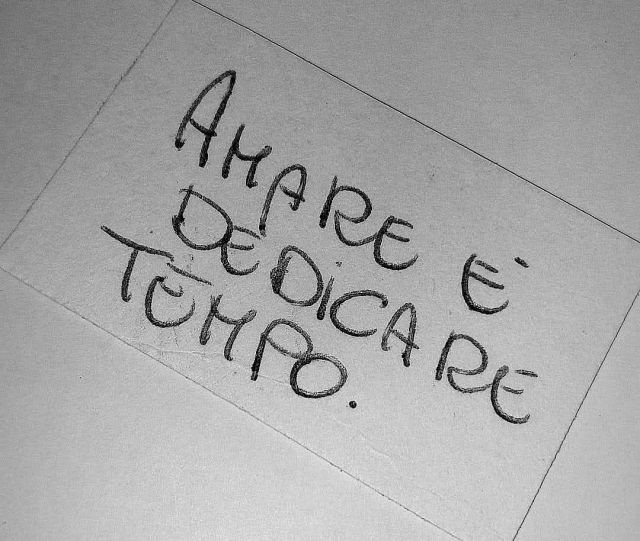 AMARE E'
DEDICARE
TEMPO.